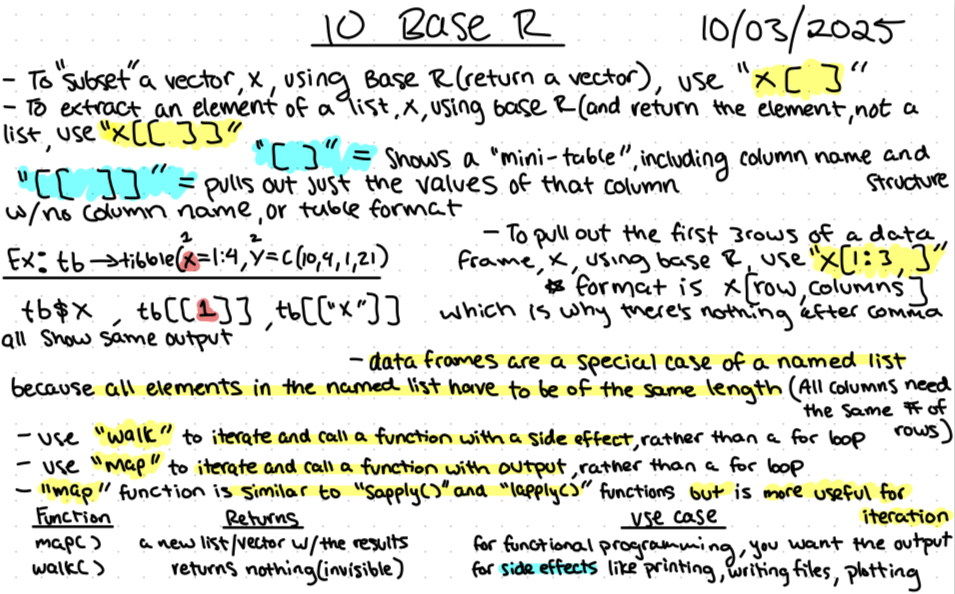 10 Base R 10/03/2025
- To "subset" a vector, x, using Base R (return a vector), use "x[ ]"
- To extract an element of a list, x, using base R (and return the element, not a
list, use "x[[ ]]"
"[ ]" = shows a "mini-table", including column name and
structure
"[[ ]]" = pulls out just the values of that column
w/no column name, or table format
Ex: tb → tibble(x=1:4, y=c(10,4,1,21)
2 2
tb$x , tb[[1]] , tb[["x"]]
all show same output
- To pull out the first 3 rows of a data
frame, x, using base R, use "x[1:3, ]"
* format is x[row, columns]
which is why there's nothing after comma
- data frames are a special case of a named list
because all elements in the named list have to be of the same length (All columns need
the same # of
rows)
- use "walk" to iterate and call a function with a side effect, rather than a for loop
- use "map" to iterate and call a function with output, rather than a for loop
- "map" function is similar to "sapply()" and "lapply()" functions but is more useful for
iteration
Function Returns use case
map() a new list/vector w/the results for functional programming, you want the output
walk() returns nothing (invisible) for side effects like printing, writing files, plotting